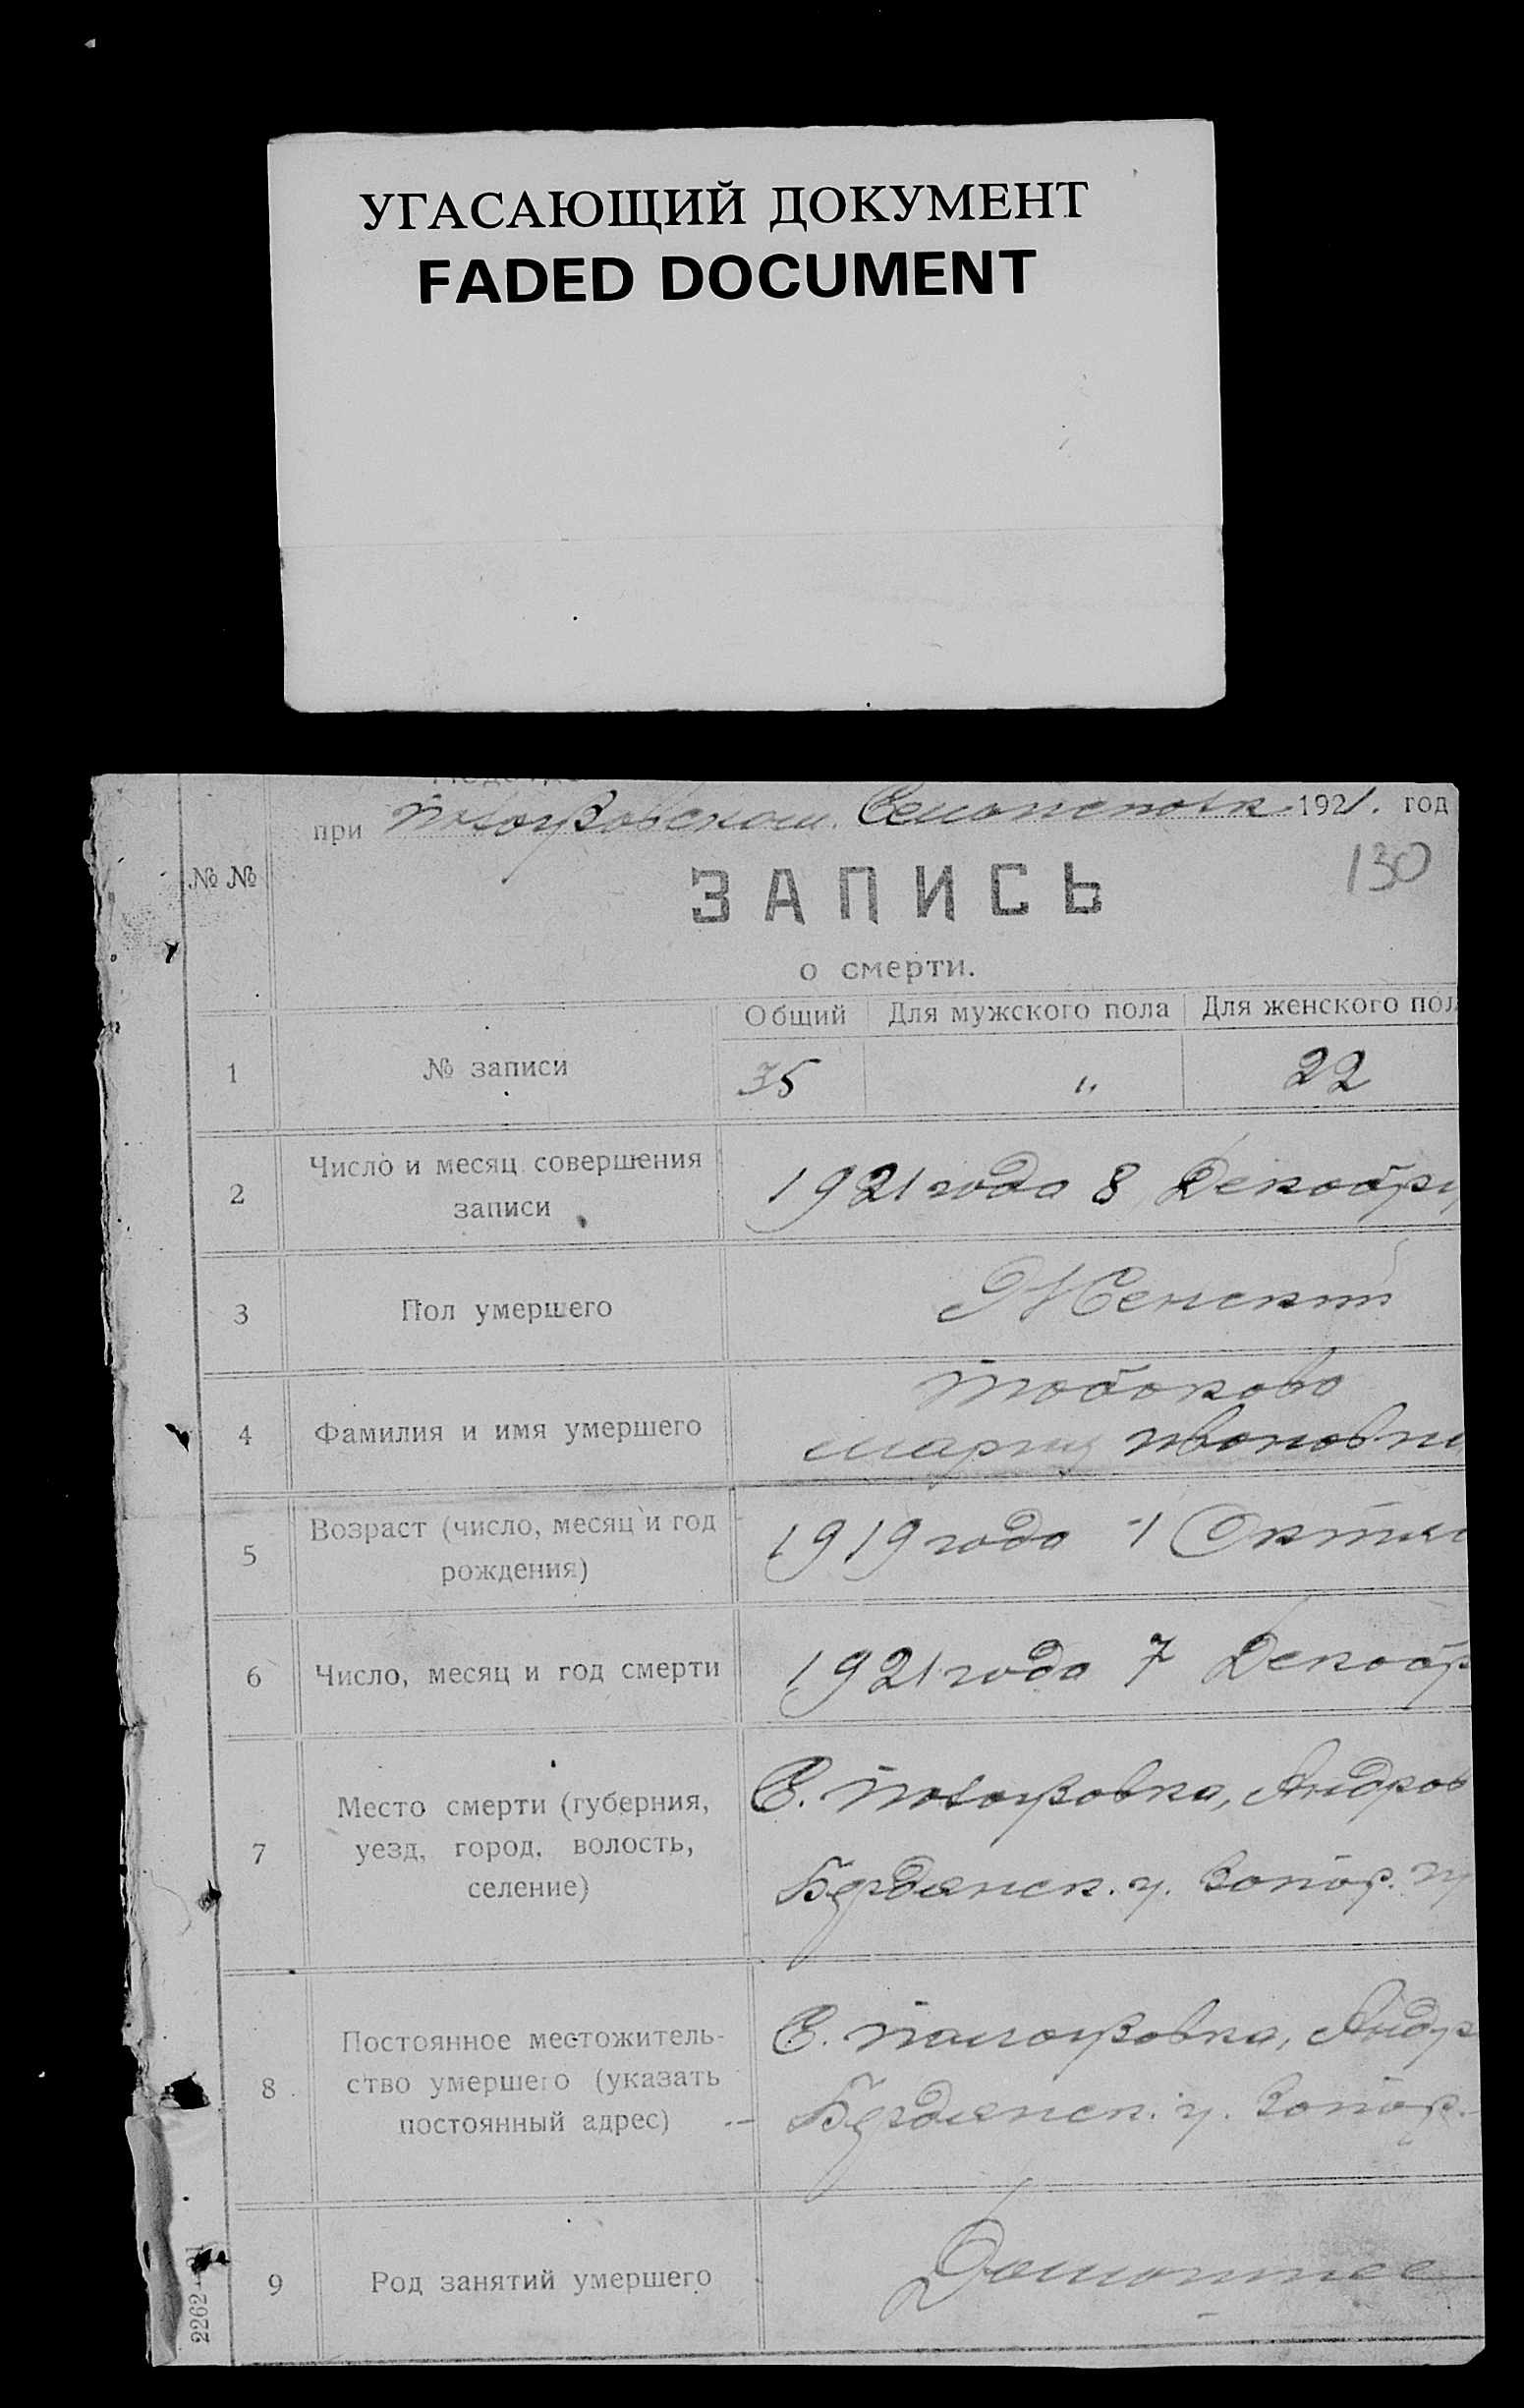 УГАСАЮЩИЙ ДОКУМЕНТ
FADED DOCUMENT
при 1921. год
130
№ №
ЗАПИСЬ
о смерти.
Общий Для мужского пола Для женского пол
1 № записи 35 " 22
2 Число и месяц совершения записи 1921 года 8 Декабря
3 Пол умершего Женский
4 Фамилия и имя умершего Табакова
Мария Ивановна
5 Возраст (число, месяц и год рождения) 1919 года 1
6 Число, месяц и год смерти 1921 года 7 Декабр
7 Место смерти (губерния, уезд, город, волость, селение) С. Андров
Бердянск. у. Запор.
8 Постоянное местожитель-
ство умершего (указать
постоянный адрес) С. Андр
Бердянск. у. Запор.
9 Род занятий умершего Домашнее
2262